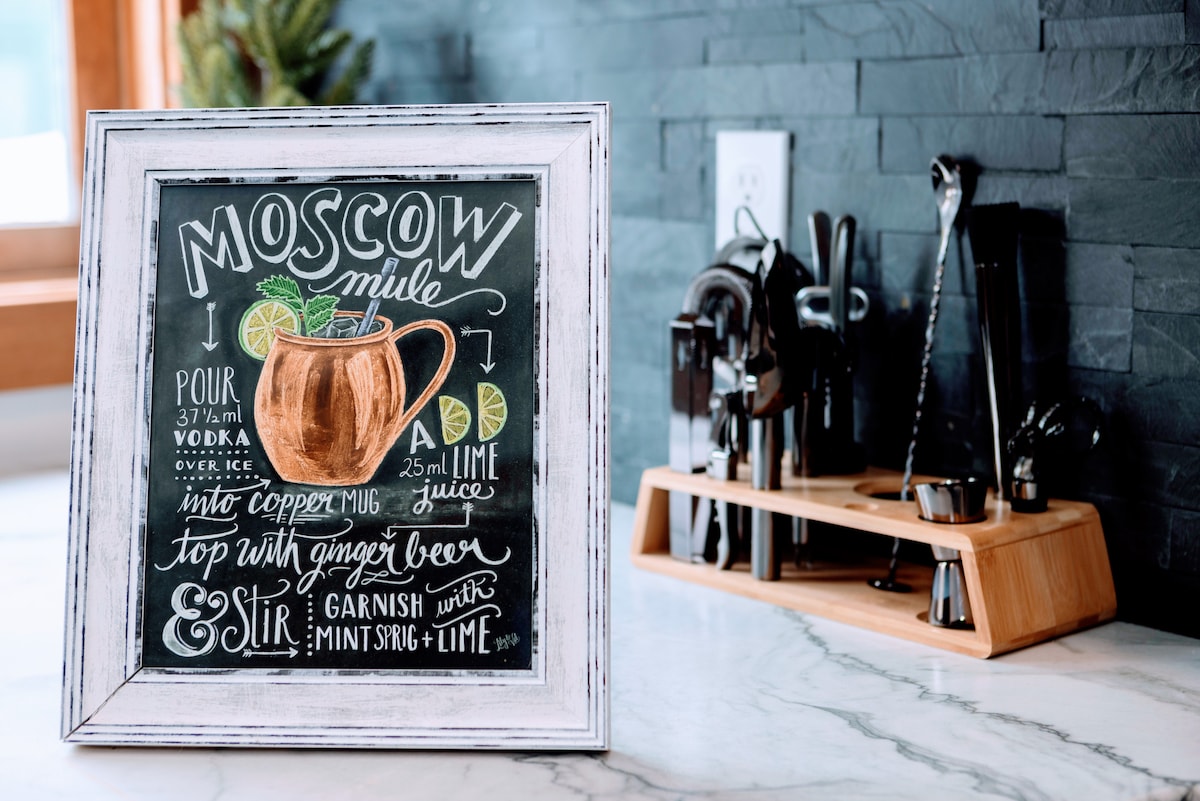 MOSCOW
mule
POUR
37 ½ ml
VODKA
OVER ICE
into copper MUG
A
25 ml LIME
juice
top with ginger beer
& Stir
GARNISH with
MINT SPRIG + LIME